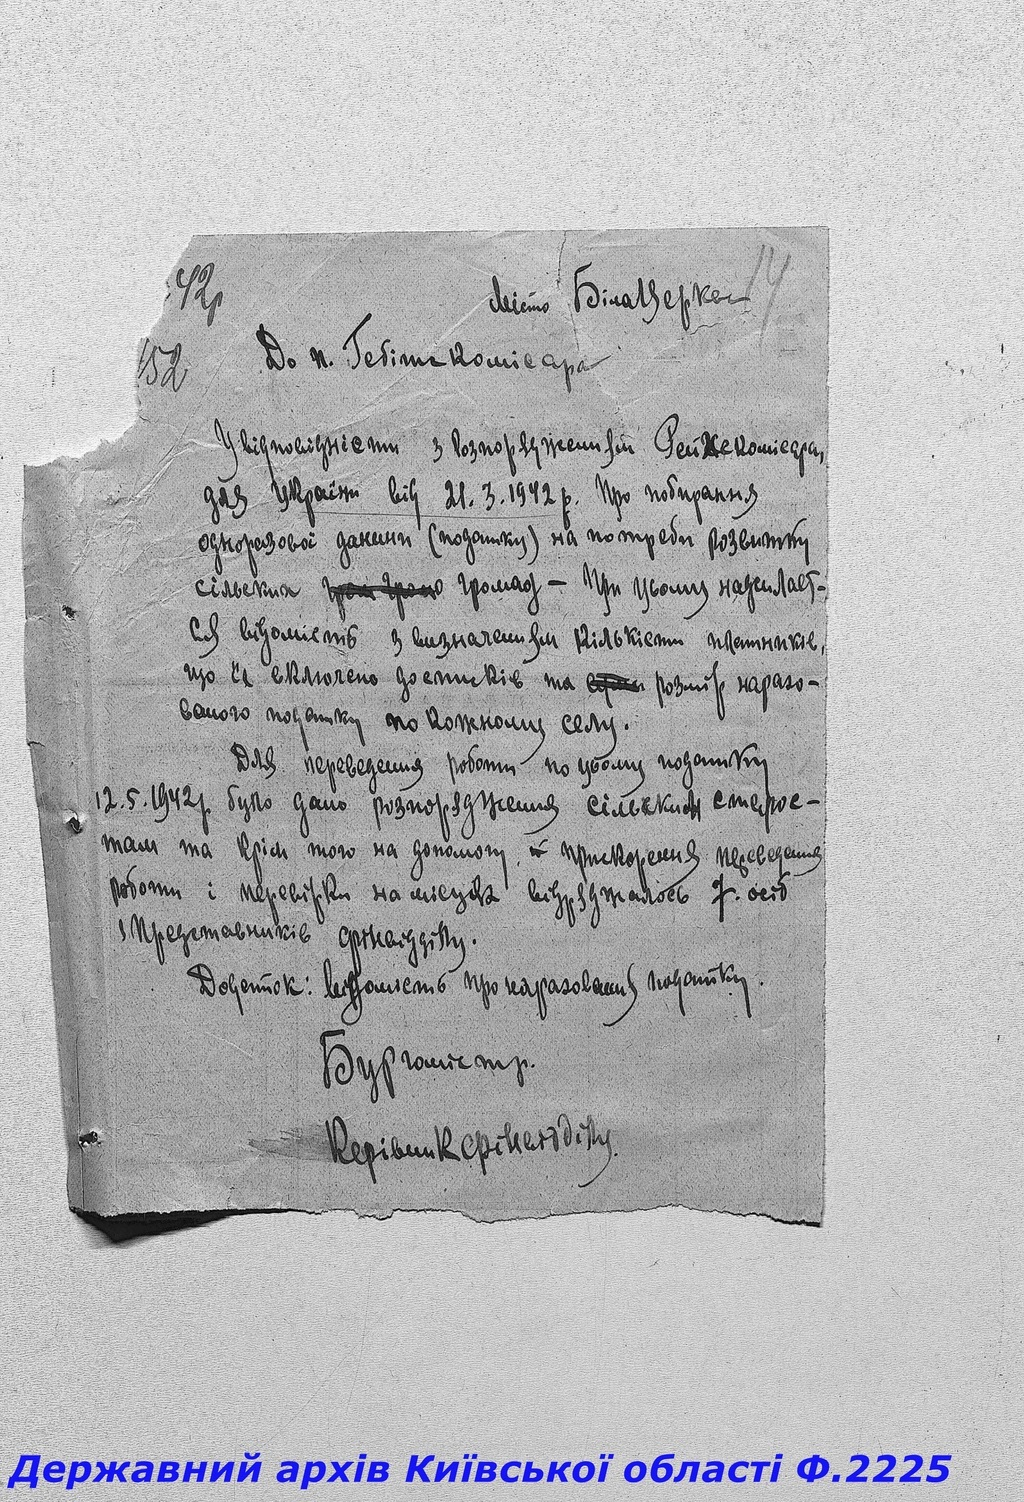 42р
14
місто Біла Церква
152
До п. Гебітскомісара
У відповідністи з розпорядженням Рейхскомісара,
для України від 21.3.1942 р. Про побирання
одноразової данини (податку) на потреби розвитку
сільських громад — При цьому надсилаєт-
ся відомість з визначенням кількісти платників,
що їх включено до списків та розмір нарахо-
ваного податку по кожному селу.
Для переведення роботи по цьому податку
12.5.1942р. було дано розпорядження сільським старос-
там та крім того на допомогу, прискорення переведення
роботи і перевірки на місцях відряджалось 7. осіб
Представників фінвідділу.
Додаток: відомість про нарахования податку.
Бургомістр.
Керівник фінвідділу.
Державний архів Київської області Ф.2225